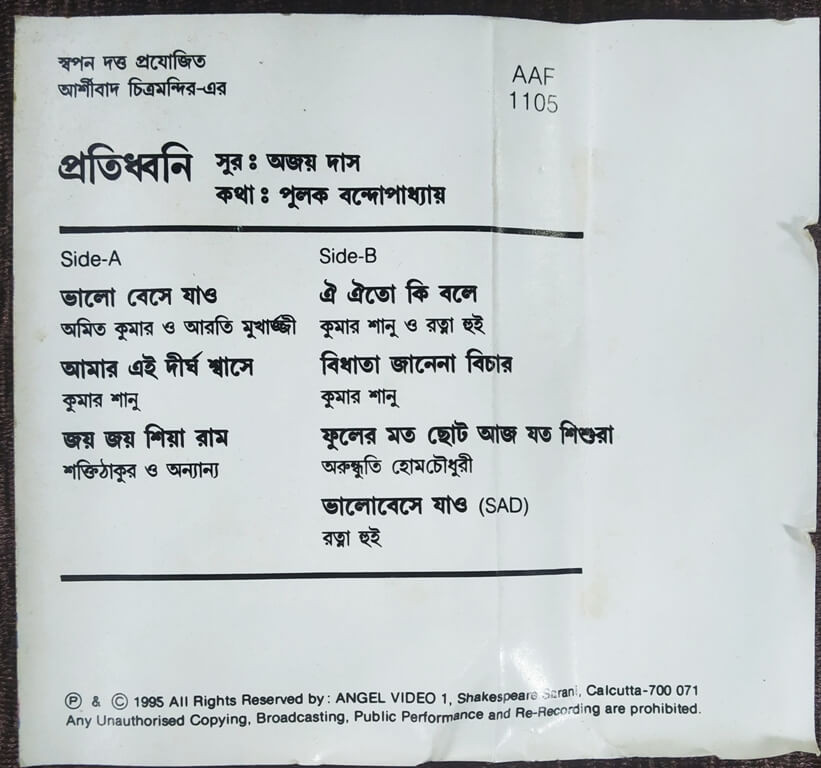 স্বপন দত্ত প্রযোজিত
আর্শীবাদ চিত্রমন্দির-এর
AAF
1105
প্রতিধ্বনি
সুর ঃ অজয় দাস
কথা ঃ পুলক বন্দোপাধ্যায়
Side-A
ভালো বেসে যাও
অমিত কুমার ও আরতি মুখার্জ্জী
আমার এই দীর্ঘ শ্বাসে
কুমার শানু
জয় জয় শিয়া রাম
শক্তিঠাকুর ও অন্যান্য
Side-B
ঐ ঐতো কি বলে
কুমার শানু ও রত্না হুই
বিধাতা জানেনা বিচার
কুমার শানু
ফুলের মত ছোট আজ যত শিশুরা
অরুন্ধুতি হোমচৌধুরী
ভালোবেসে যাও (SAD)
রত্না হুই
Ⓟ & © 1995 All Rights Reserved by : ANGEL VIDEO 1, Shakespeare Sarani, Calcutta-700 071
Any Unauthorised Copying, Broadcasting, Public Performance and Re-Recording are prohibited.